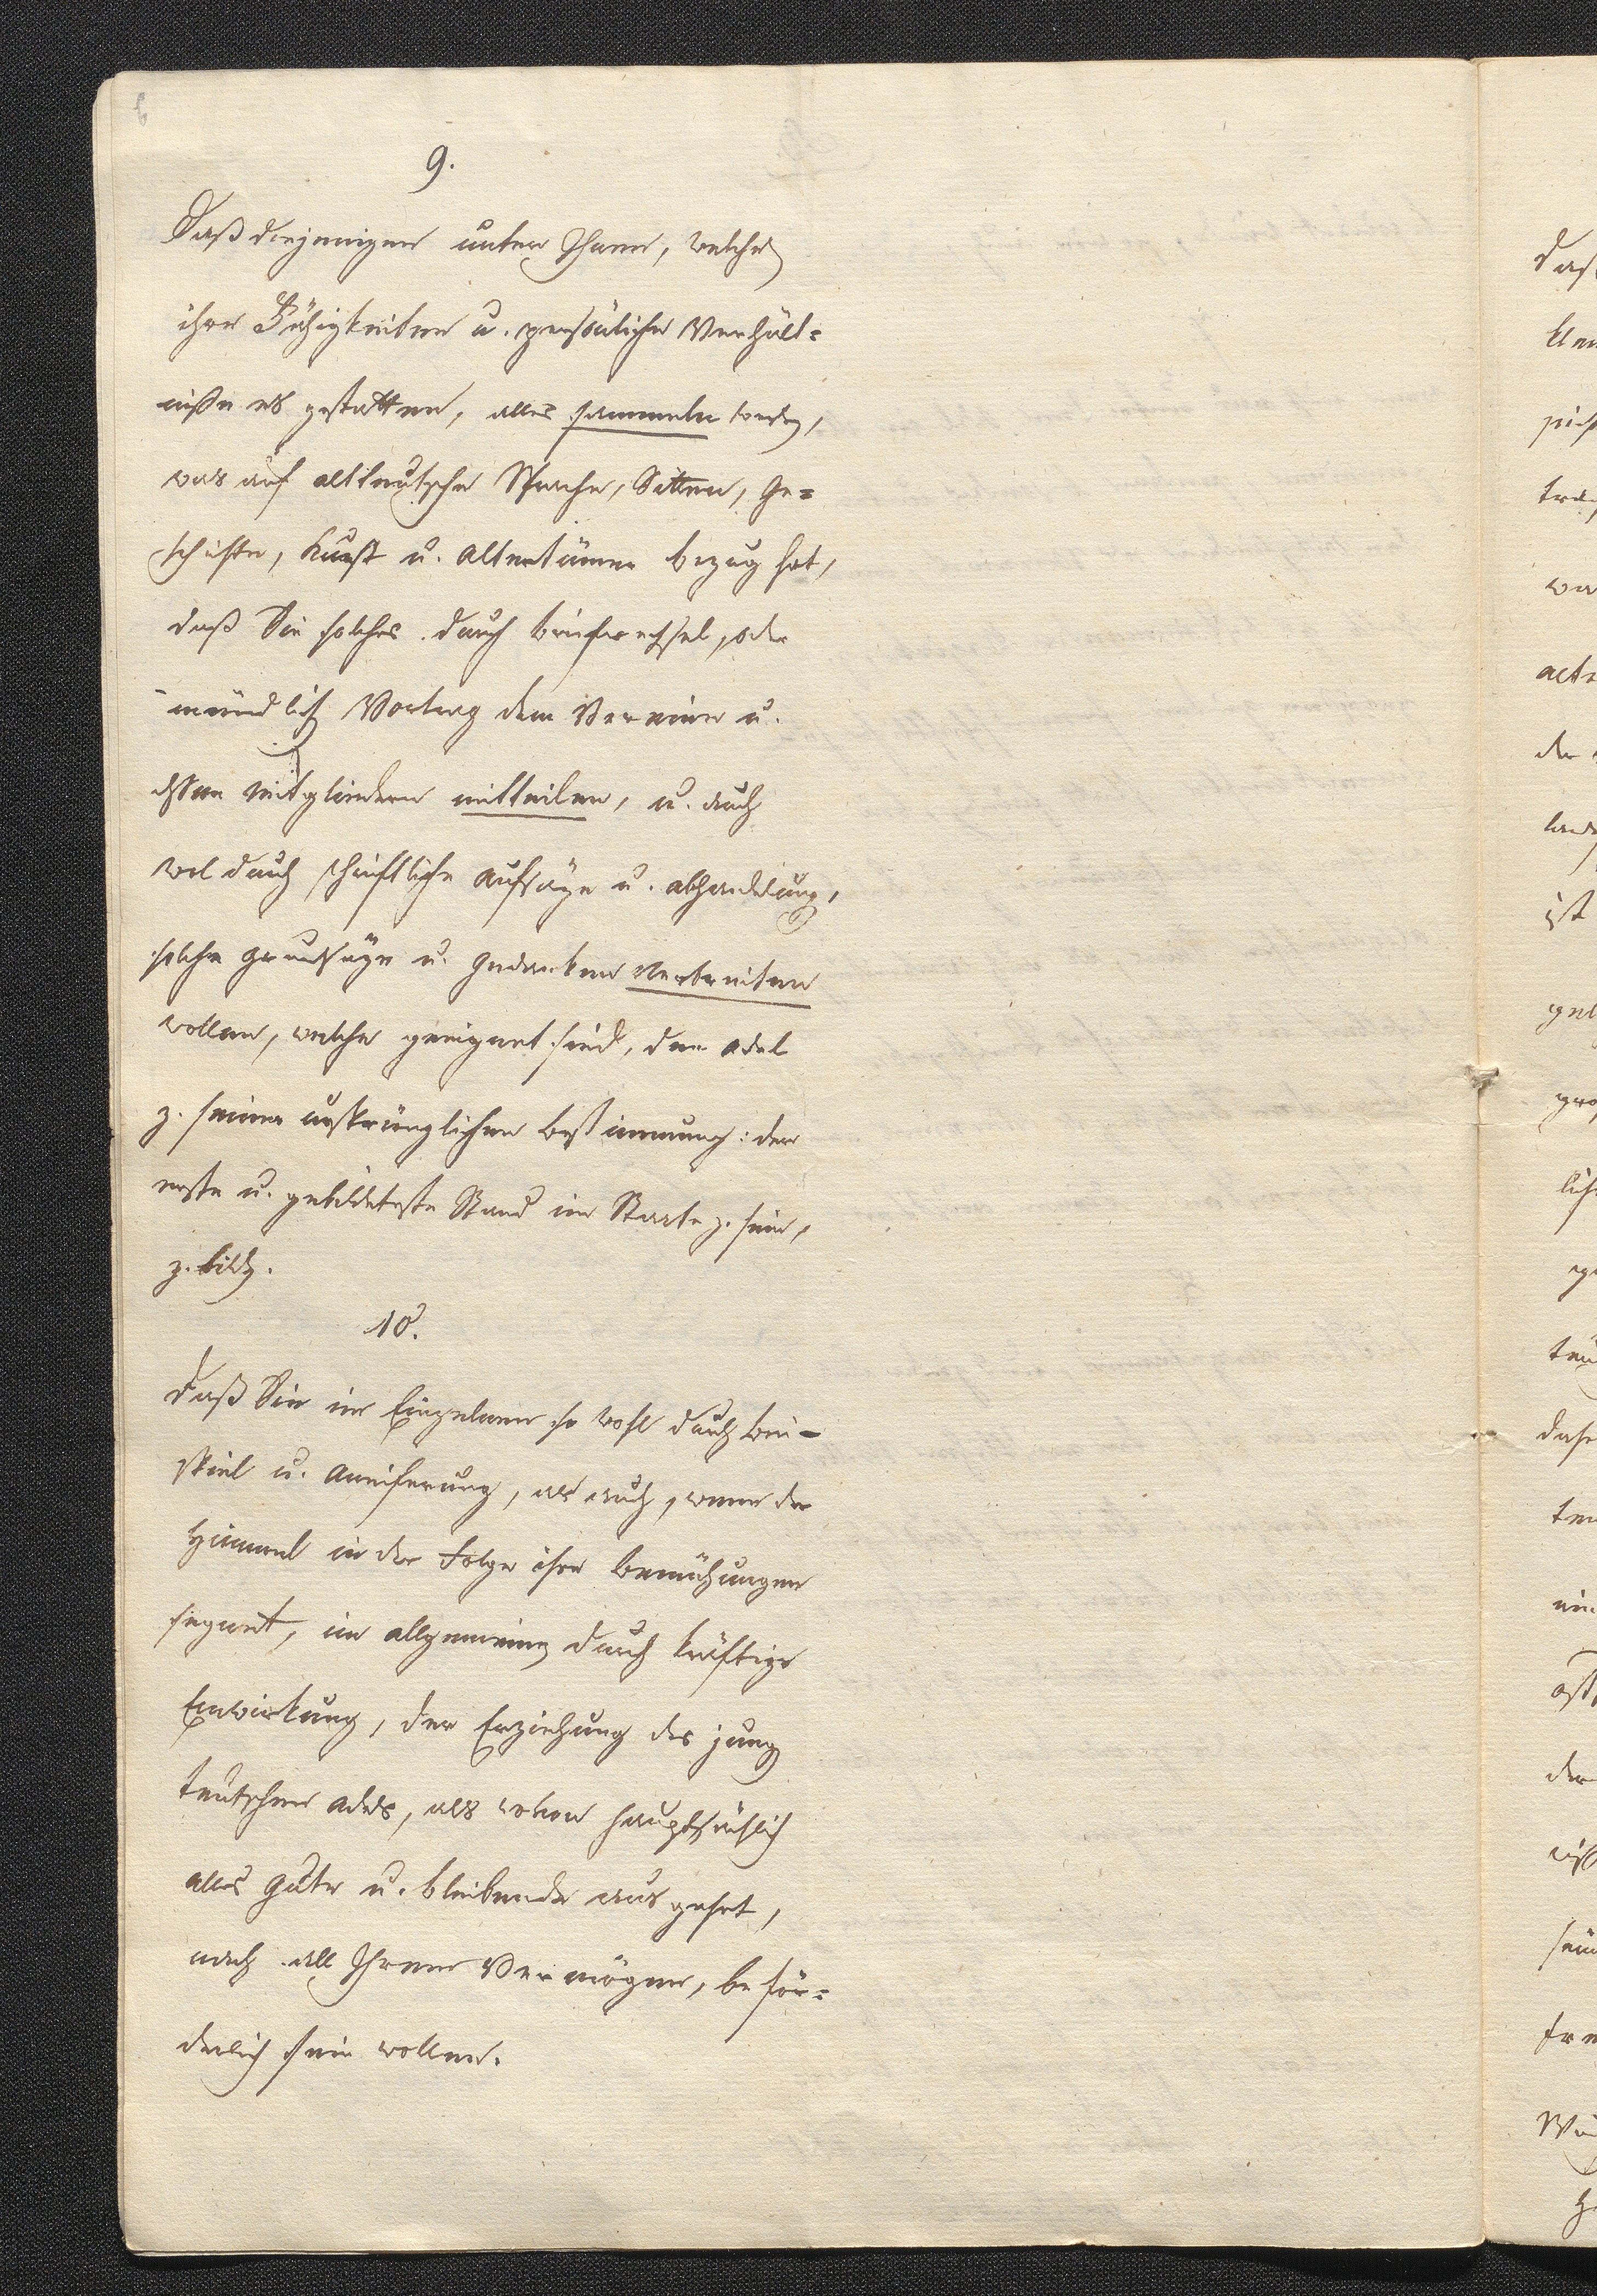 9.
Daß diejenigen unter Ihnen, welchen
ihre Fähigkeiten u. persönliche Verhält=
niße es gestatten, alles sammeln werden,
was auf altteutsche Sprache, Sitten, Ge=
schichte, Kunst u. Altertümer bezug hat,
daß Sie solches durch briefwechsel, oder
mündlich Vortrag dem Vereine u.
deßen Mitgliedern mitteilen, u. auch
wol durch schriftliche Aufsäze u. abhandelung,
solche Grundsäze u. Gedanken verbreiten
wollen, welche geeignet sind, den adel
z. seiner ursprünglichen bestimmung: der
erste u. gebildeteste Stand im Staate z. sein,
z. bilden.
10.
Daß Sie im Einzelnen so wohl durch bei-
spiel u. Aneiferung, als auch, wenn der
Himmel in der Folge ihre bemühungen
segnet, im allgemeinen durch kräftige
Einwirkung, der Erziehung des jungen
teutschen adels, als wovon hauptsächlich
alles gute u. bleibende aus gehet,
nach all Ihrem Vermögen, beför=
derlich sein wollen.